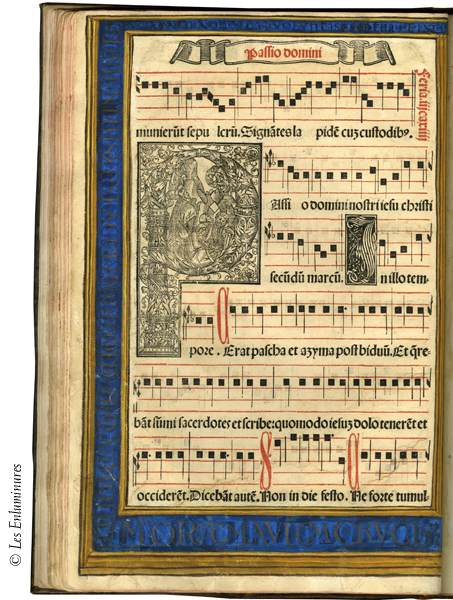 Passio domini
Feria.iij.
munierūt sepu lcrū. Signātes la pidē cuz custodibꝰ.
Assi o domini nostri iesu christi
secūdū marcū. n illo tem-
pore. Erat pascha et azyma post biduū. Et q̄re-
bāt sūmi sacerdotes et scribe: quomodo iesuz dolo tenerēt et
occiderēt. Dicebāt autē. Non in die festo. Ne forte tumul
© Les Enluminures